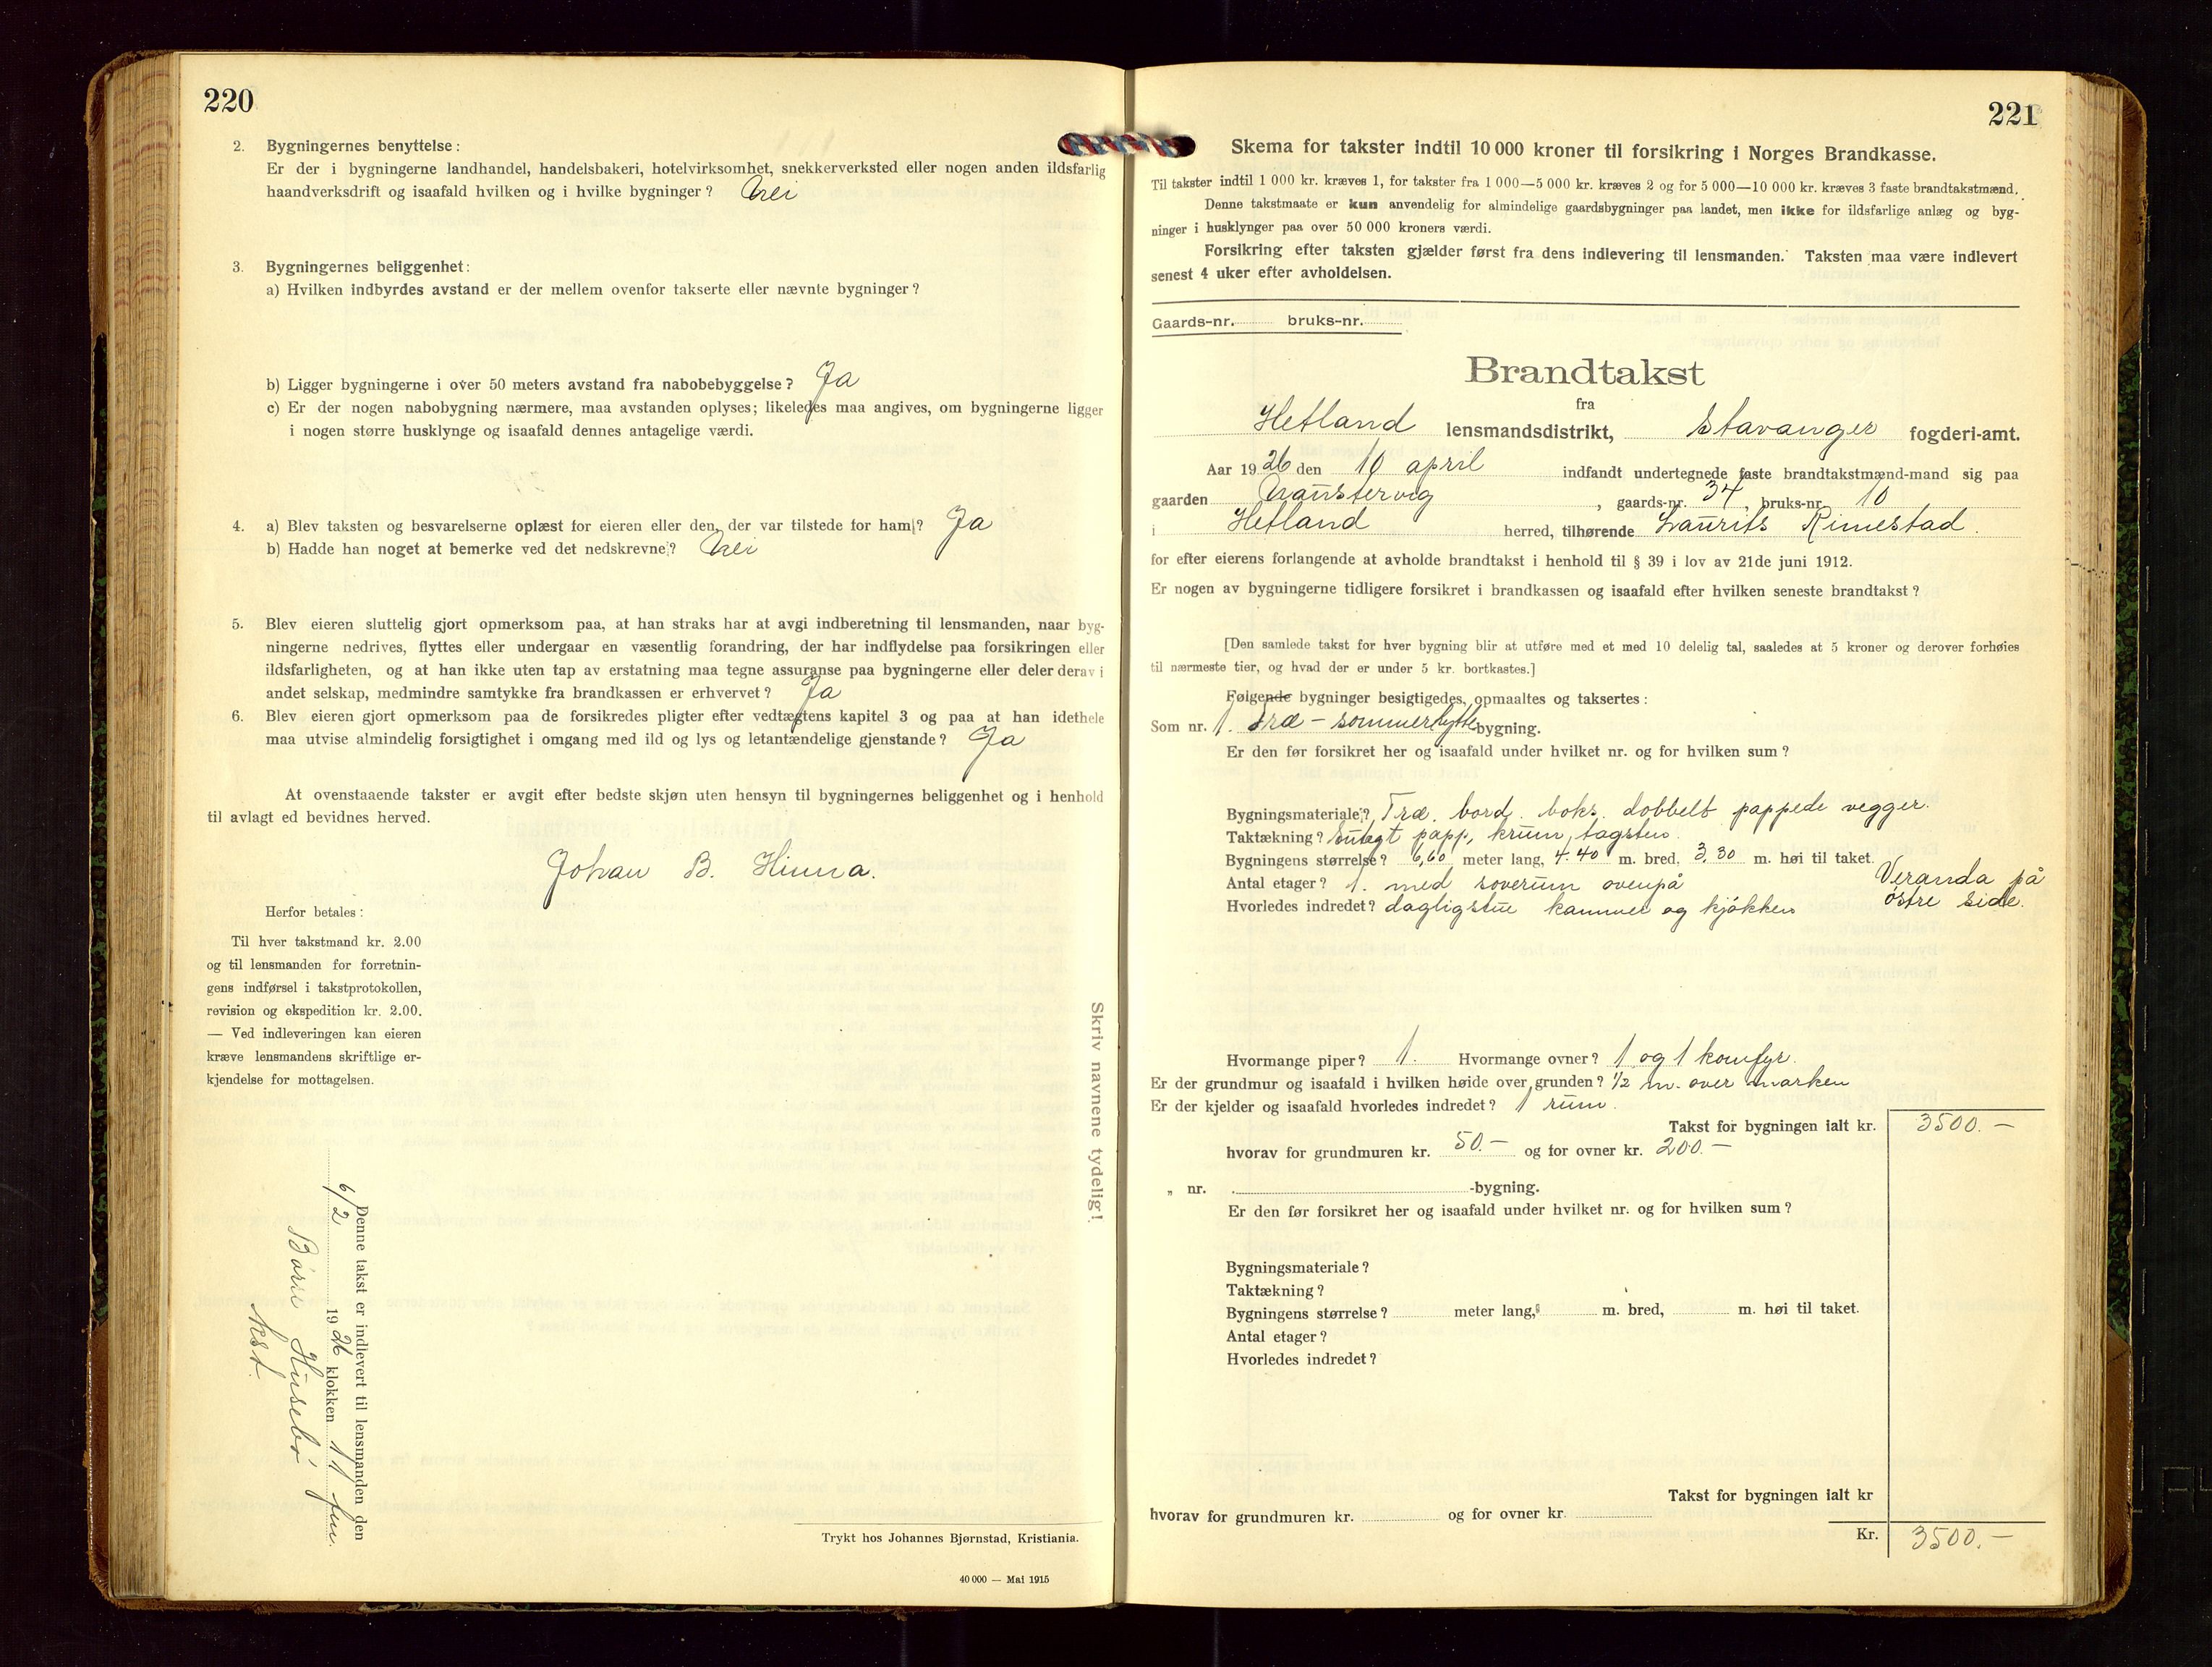 220
2. Bygningernes benyttelse:
Er der i bygningerne landhandel, handelsbakeri, hotelvirksomhet, snekkerverksted eller nogen anden ildsfarlig
haandverksdrift og isaafald hvilken og i hvilke bygninger? Nei
3. Bygningernes beliggenhet:
a) Hvilken indbyrdes avstand er der mellem ovenfor takserte eller nævnte bygninger?
b) Ligger bygningerne i over 50 meters avstand fra nabobebyggelse? Ja
c) Er der nogen nabobygning nærmere, maa avstanden oplyses; likeledes maa angives, om bygningerne ligger
i nogen større husklynge og isaafald dennes antagelige værdi.
4. a) Blev taksten og besvarelserne oplæst for eieren eller den, der var tilstede for ham? Ja
b) Hadde han noget at bemerke ved det nedskrevne? Nei
5. Blev eieren sluttelig gjort opmerksom paa, at han straks har at avgi indberetning til lensmanden, naar byg-
ningerne nedrives, flyttes eller undergaar en væsentlig forandring, der har indflydelse paa forsikringen eller
ildsfarligheten, og at han ikke uten tap av erstatning maa tegne assuranse paa bygningerne eller deler derav i
andet selskap, medmindre samtykke fra brandkassen er erhvervet? Ja
6. Blev eieren gjort opmerksom paa de forsikredes pligter efter vedtægtens kapitel 3 og paa at han idethele
maa utvise almindelig forsigtighet i omgang med ild og lys og letantændelige gjenstande? Ja
At ovenstaaende takster er avgit efter bedste skjøn uten hensyn til bygningernes beliggenhet og i henhold
til avlagt ed bevidnes herved.
Johan B. Hinna.
Herfor betales:
Til hver takstmand kr. 2.00
og til lensmanden for forretnin-
gens indførsel i takstprotokollen,
revision og ekspedition kr. 2.00.
— Ved indleveringen kan eieren
kræve lensmandens skriftlige er-
kjendelse for mottagelsen.
Skriv navnene tydelig!
Denne takst er indlevert til lensmanden den
6/2 1926 klokken 11 fm.
Börre Husebö
Trykt hos Johannes Bjørnstad, Kristiania.
40 000 — Mai 1915
221
Skema for takster indtil 10 000 kroner til forsikring i Norges Brandkasse.
Til takster indtil 1 000 kr. kræves 1, for takster fra 1 000—5 000 kr. kræves 2 og for 5 000—10 000 kr. kræves 3 faste brandtakstmænd.
Denne takstmaate er kun anvendelig for almindelige gaardsbygninger paa landet, men ikke for ildsfarlige anlæg og byg-
ninger i husklynger paa over 50 000 kroners værdi.
Forsikring efter taksten gjælder først fra dens indlevering til lensmanden. Taksten maa være indlevert
senest 4 uker efter avholdelsen.
Gaards-nr. bruks-nr.
Brandtakst
fra
Hetland lensmandsdistrikt, Stavanger fogderi-amt.
Aar 1926 den 10 april indfandt undertegnede faste brandtakstmænd-mand sig paa
gaarden , gaards-nr. 34, bruks-nr. 10
i Hetland herred, tilhørende Laurits Rimestad.
for efter eierens forlangende at avholde brandtakst i henhold til § 39 i lov av 21de juni 1912.
Er nogen av bygningerne tidligere forsikret i brandkassen og isaafald efter hvilken seneste brandtakst?
[Den samlede takst for hver bygning blir at utføre med et med 10 delelig tal, saaledes at 5 kroner og derover forhøies
til nærmeste tier, og hvad der er under 5 kr. bortkastes.]
Følgende bygninger besigtigedes, opmaaltes og taksertes:
Som nr. 1. Træ - sommerhyttebygning.
Er den før forsikret her og isaafald under hvilket nr. og for hvilken sum?
Bygningsmateriale? Træ. bord. boks. dobbelt pappede vegger.
Taktækning? Sutagt papp, krum, tagsten.
Bygningens størrelse? 6,60 meter lang, 4.40 m. bred, 3,30 m. høi til taket.
Antal etager? 1. med soverum ovenpå Veranda på
Hvorledes indredet? dagligstue kammer og kjökken östre side.
Hvormange piper? 1. Hvormange ovner? 1 og 1 komfyr.
Er der grundmur og isaafald i hvilken høide over grunden? 1/2 m. over marken
Er der kjelder og isaafald hvorledes indredet? 1 rum.
Takst for bygningen ialt kr. 3500.—
hvorav for grundmuren kr. 50.— og for ovner kr. 200.—
„ nr. -bygning.
Er den før forsikret her og isaafald under hvilket nr. og for hvilken sum?
Bygningsmateriale?
Taktækning?
Bygningens størrelse? meter lang, m. bred, m. høi til taket.
Antal etager?
Hvorledes indredet?
Takst for bygningen ialt kr
hvorav for grundmuren kr. og for ovner kr.
Kr. 3500.—